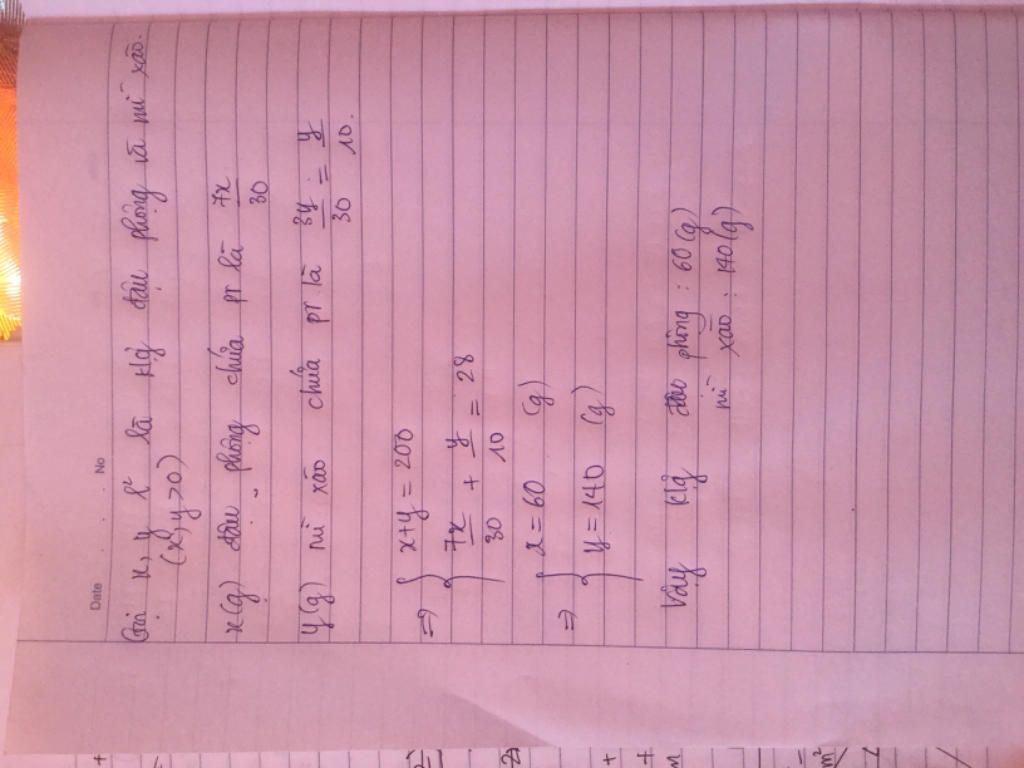 Date . . . No
Gọi x, y lần lượt là klg đậu phộng và mì xào.
(x, y > 0)
x (g) đậu phộng chứa pr là 7x/30
y (g) mì xào chứa pr là 3y/30 = y/10.
=> { x + y = 200
7x/30 + y/10 = 28
=> { x = 60 (g)
y = 140 (g)
Vậy klg đậu phộng : 60 (g)
mì xào : 140 (g)